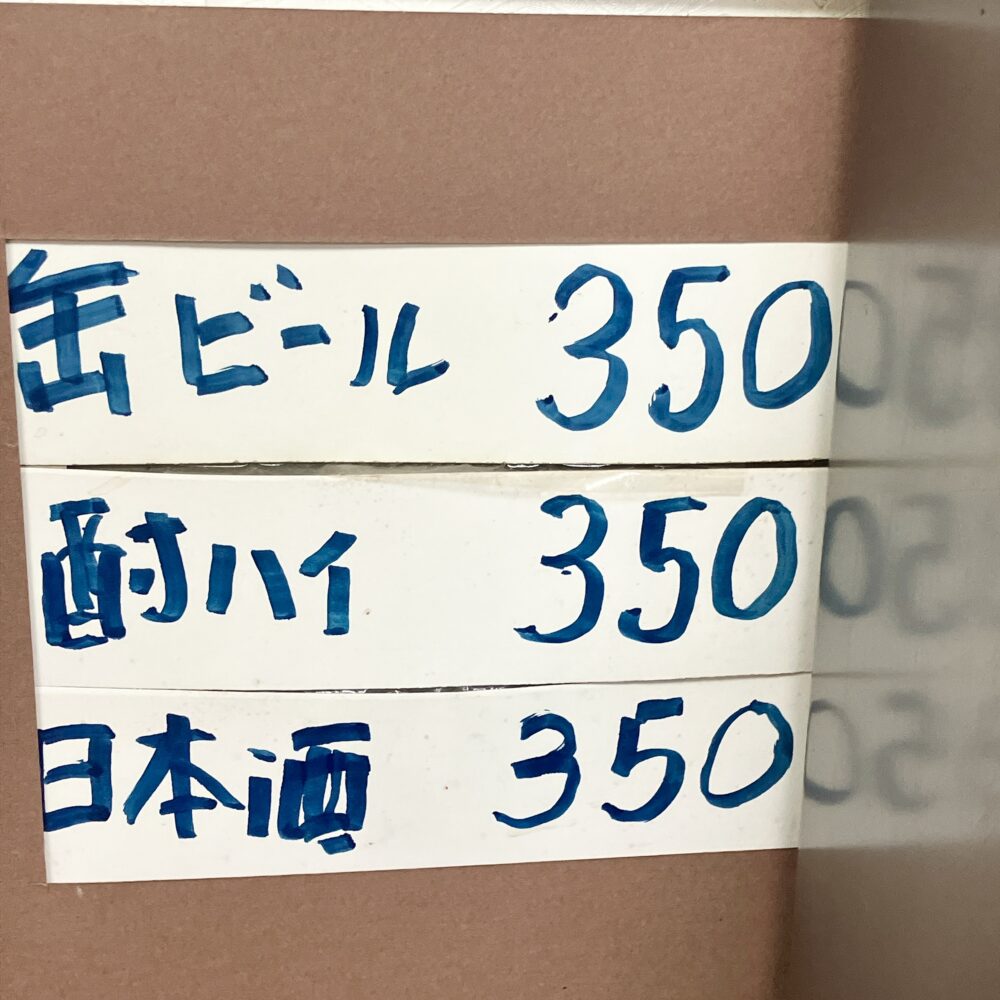 缶ビール 350
酎ハイ 350
日本酒 350